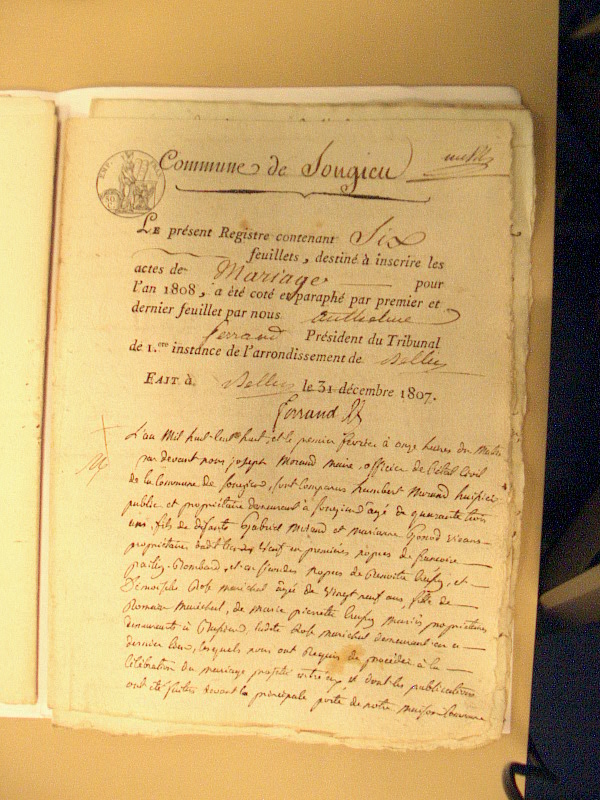 Commune de Songieu
Le présent Registre contenant Six
feuillets, destiné à inscrire les
actes de Mariage pour
l'an 1808, a été coté et paraphé par premier et
dernier feuillet par nous Anthelme
Ferrand Président du Tribunal
de 1.ere instance de l'arrondissement de Belley
Fait à Belley le 31 décembre 1807.
Ferrand
L'an Mil huit cent huit, et le premier février à onze heures du Matin
par devant nous joseph Morand Maire, officier de l'état Civil
de la Commune de Songieu, sont comparus humbert Morand huissier
public et propriétaire demeurant à Songieu âgé de quarante trois
ans, fils de défunts Gabriel Morand et marianne vivans
propriétaires Veuf en premières nopces de francoise
et en secondes nopces de et
Demoiselle Rose marechal âgée de Vingt neuf ans, fille de
Romain Maréchal, de marie pierrette Mariés propriétaires
demeurants à ladite Rose marechal demeurant en ce
dernier lieu, lesquels nous ont Requis de procéder à la
célébration du mariage projetté entre eux, et dont les publications
ont été faites devant la principale porte de notre maison Commune